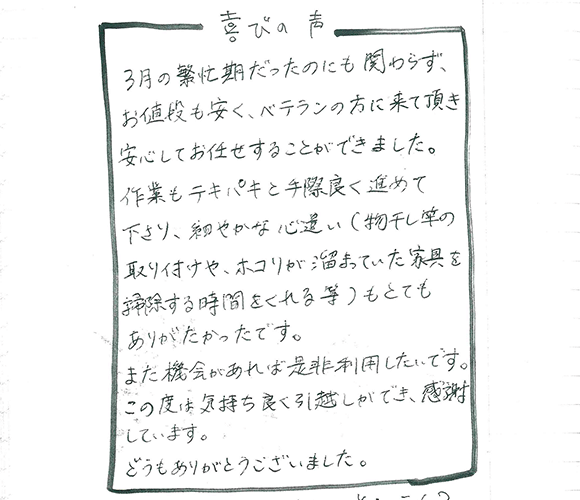 喜びの声
3月の繁忙期だったのにも関わらず、
お値段も安く、ベテランの方に来て頂き
安心してお任せすることができました。
作業もテキパキと手際良く進めて
下さり、細やかな心遣い(物干し竿の
取り付けや、ホコリが溜まっていた家具を
掃除する時間をくれる等)もとても
ありがたかったです。
また機会があれば是非利用したいです。
この度は気持ち良く引越しができ、感謝
しています。
どうもありがとうございました。